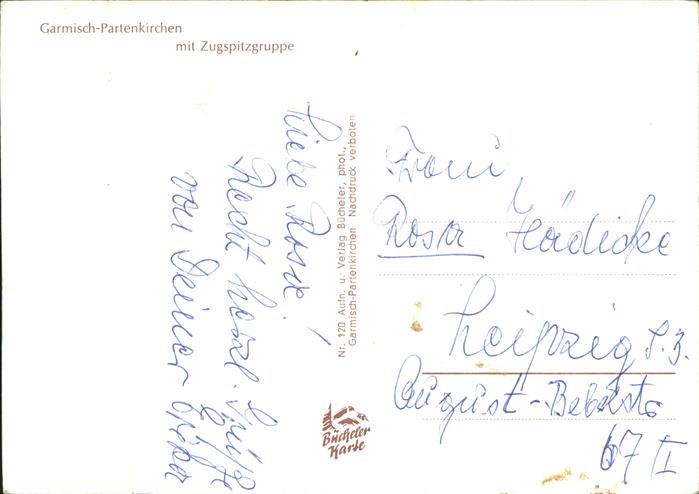 Garmisch-Partenkirchen
mit Zugspitzgruppe
Liebe Rosa!
Recht herzl. Grüße
von Deiner Erika
Nr. 120 Aufn. u. Verlag Bücheler, phot.,
Garmisch-Partenkirchen Nachdruck verboten
Bücheler
Karte
Frau
Rosa Hädicke
Leipzig S.3.
August-Bebelstr.
67 I